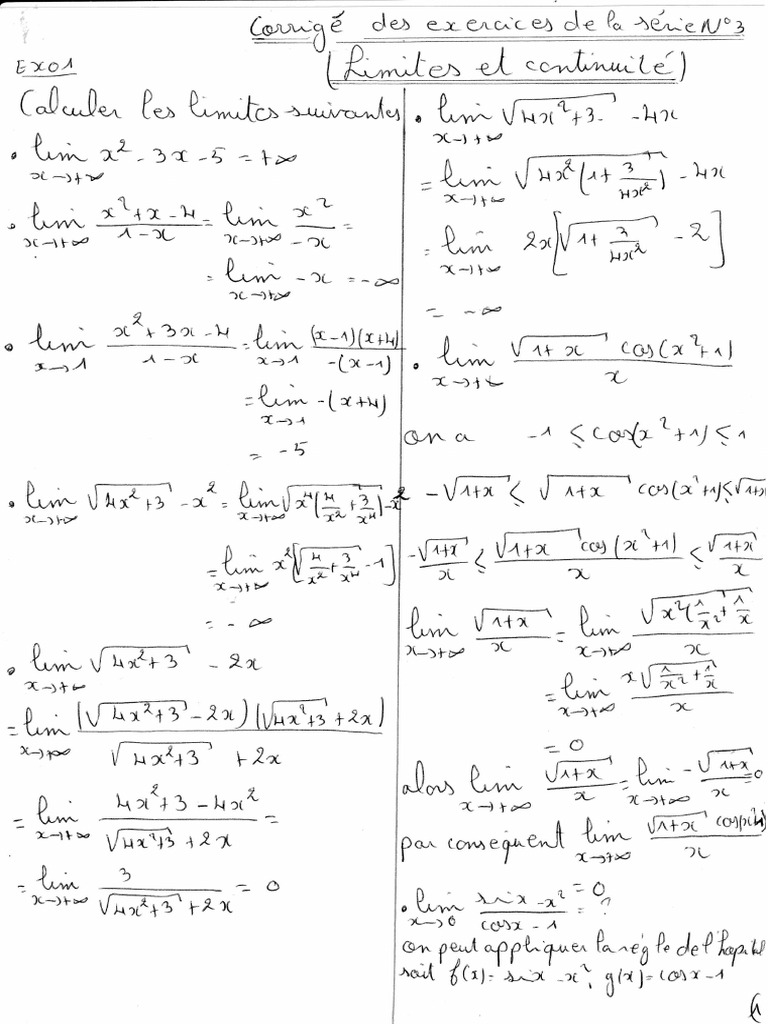 Corrigé des exercices de la série N°3
(Limites et continuité)
EX01
Calculer les limites suivantes
• lim x→+∞ x² - 3x - 5 = +∞
• lim x→+∞ (x² + x - 4)/(1 - x) = lim x→+∞ x²/(-x) =
= lim x→+∞ -x = -∞
• lim x→1 (x² + 3x - 4)/(1 - x) = lim x→1 (x-1)(x+4)/(-(x-1))
= lim x→1 -(x+4)
= -5
• lim x→+∞ √(4x²+3) - x² = lim x→+∞ √(x⁴(4/x² + 3/x⁴)) - x²
= lim x→+∞ x²[√(4/x² + 3/x⁴) - 1]
= -∞
• lim x→+∞ √(4x²+3) - 2x
= lim x→+∞ (√(4x²+3) - 2x)(√(4x²+3) + 2x)/(√(4x²+3) + 2x)
= lim x→+∞ (4x²+3 - 4x²)/(√(4x²+3) + 2x) =
= lim x→+∞ 3/(√(4x²+3) + 2x) = 0
• lim x→+∞ √(4x²+3) - 4x
= lim x→+∞ √(4x²(1 + 3/4x²)) - 4x
= lim x→+∞ 2x[√(1 + 3/4x²) - 2]
= -∞
• lim x→+∞ √(1+x) cos(x²+1)/x
on a -1 ≤ cos(x²+1) ≤ 1
-√(1+x) ≤ √(1+x) cos(x²+1) ≤ √(1+x)
-√(1+x)/x ≤ √(1+x) cos(x²+1)/x ≤ √(1+x)/x
lim x→+∞ √(1+x)/x = lim x→+∞ √(x²(1/x² + 1/x))/x
= lim x→+∞ x√(1/x² + 1/x)/x
= 0
alors lim x→+∞ √(1+x)/x = lim x→+∞ -√(1+x)/x = 0
par conséquent lim x→+∞ √(1+x)/x
= 0
• lim x→0 (sin x - x²)/(cos x - 1) = ?
on peut appliquer la régle de l'hopital
soit f(x) = sin x - x², g(x) = cos x - 1